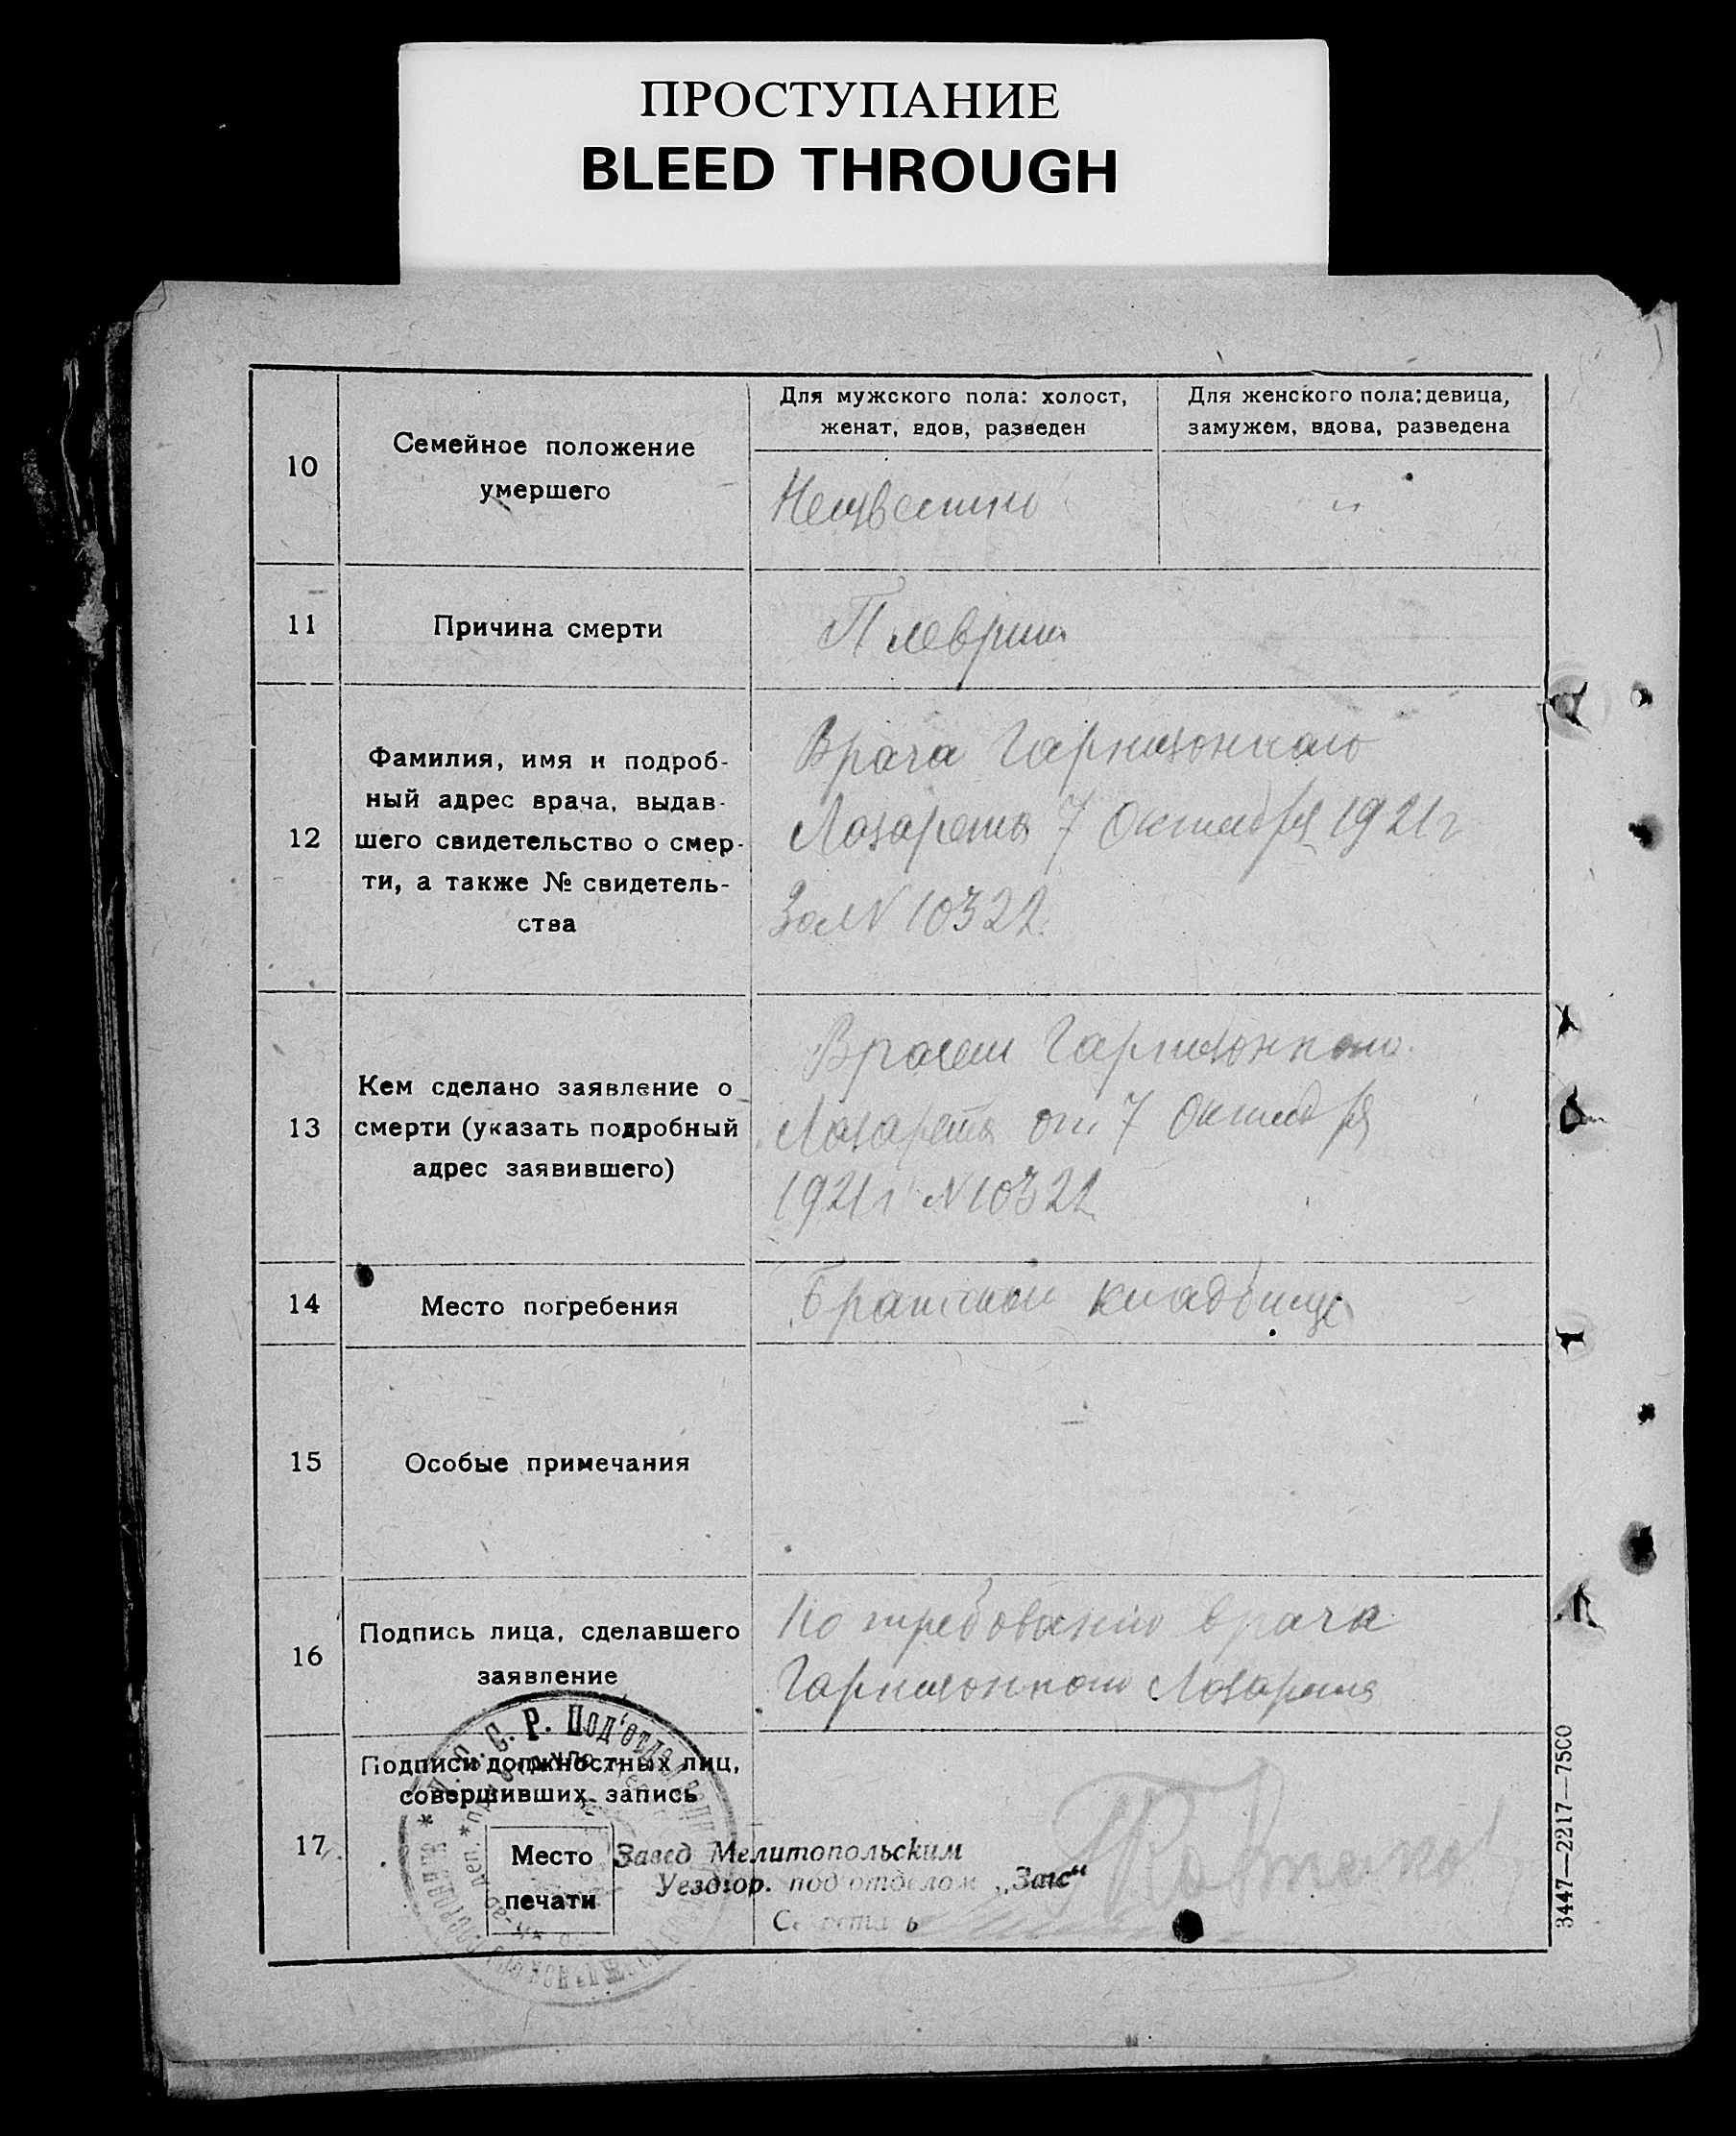 ПРОСТУПАНИЕ
BLEED THROUGH
10
Семейное положение
умершего
Для мужского пола: холост,
женат, вдов, разведен
Для женского пола: девица,
замужем, вдова, разведена
Неизвестно
"
11
Причина смерти
Плеврит
12
Фамилия, имя и подроб-
ный адрес врача, выдав-
шего свидетельство о смер-
ти, а также № свидетель-
ства
Врача Гарнизонного
Лазарета 7 Октября 1921 г
За № 10322
13
Кем сделано заявление о
смерти (указать подробный
адрес заявившего)
Врачем Гарнизонного
Лазарета от 7 Октября
1921 г № 10322
14
Место погребения
Братское кладбище
15
Особые примечания
16
Подпись лица, сделавшего
заявление
По требованию врача
Гарнизонного Лазарета
17
Подписи должностных лиц,
совершивших запись
Место
печати
С. С. Р. Под'отдел
Завед Мелитопольским
Уездгор. под'отделом „Загс“
Секретарь
3447—2217—7500